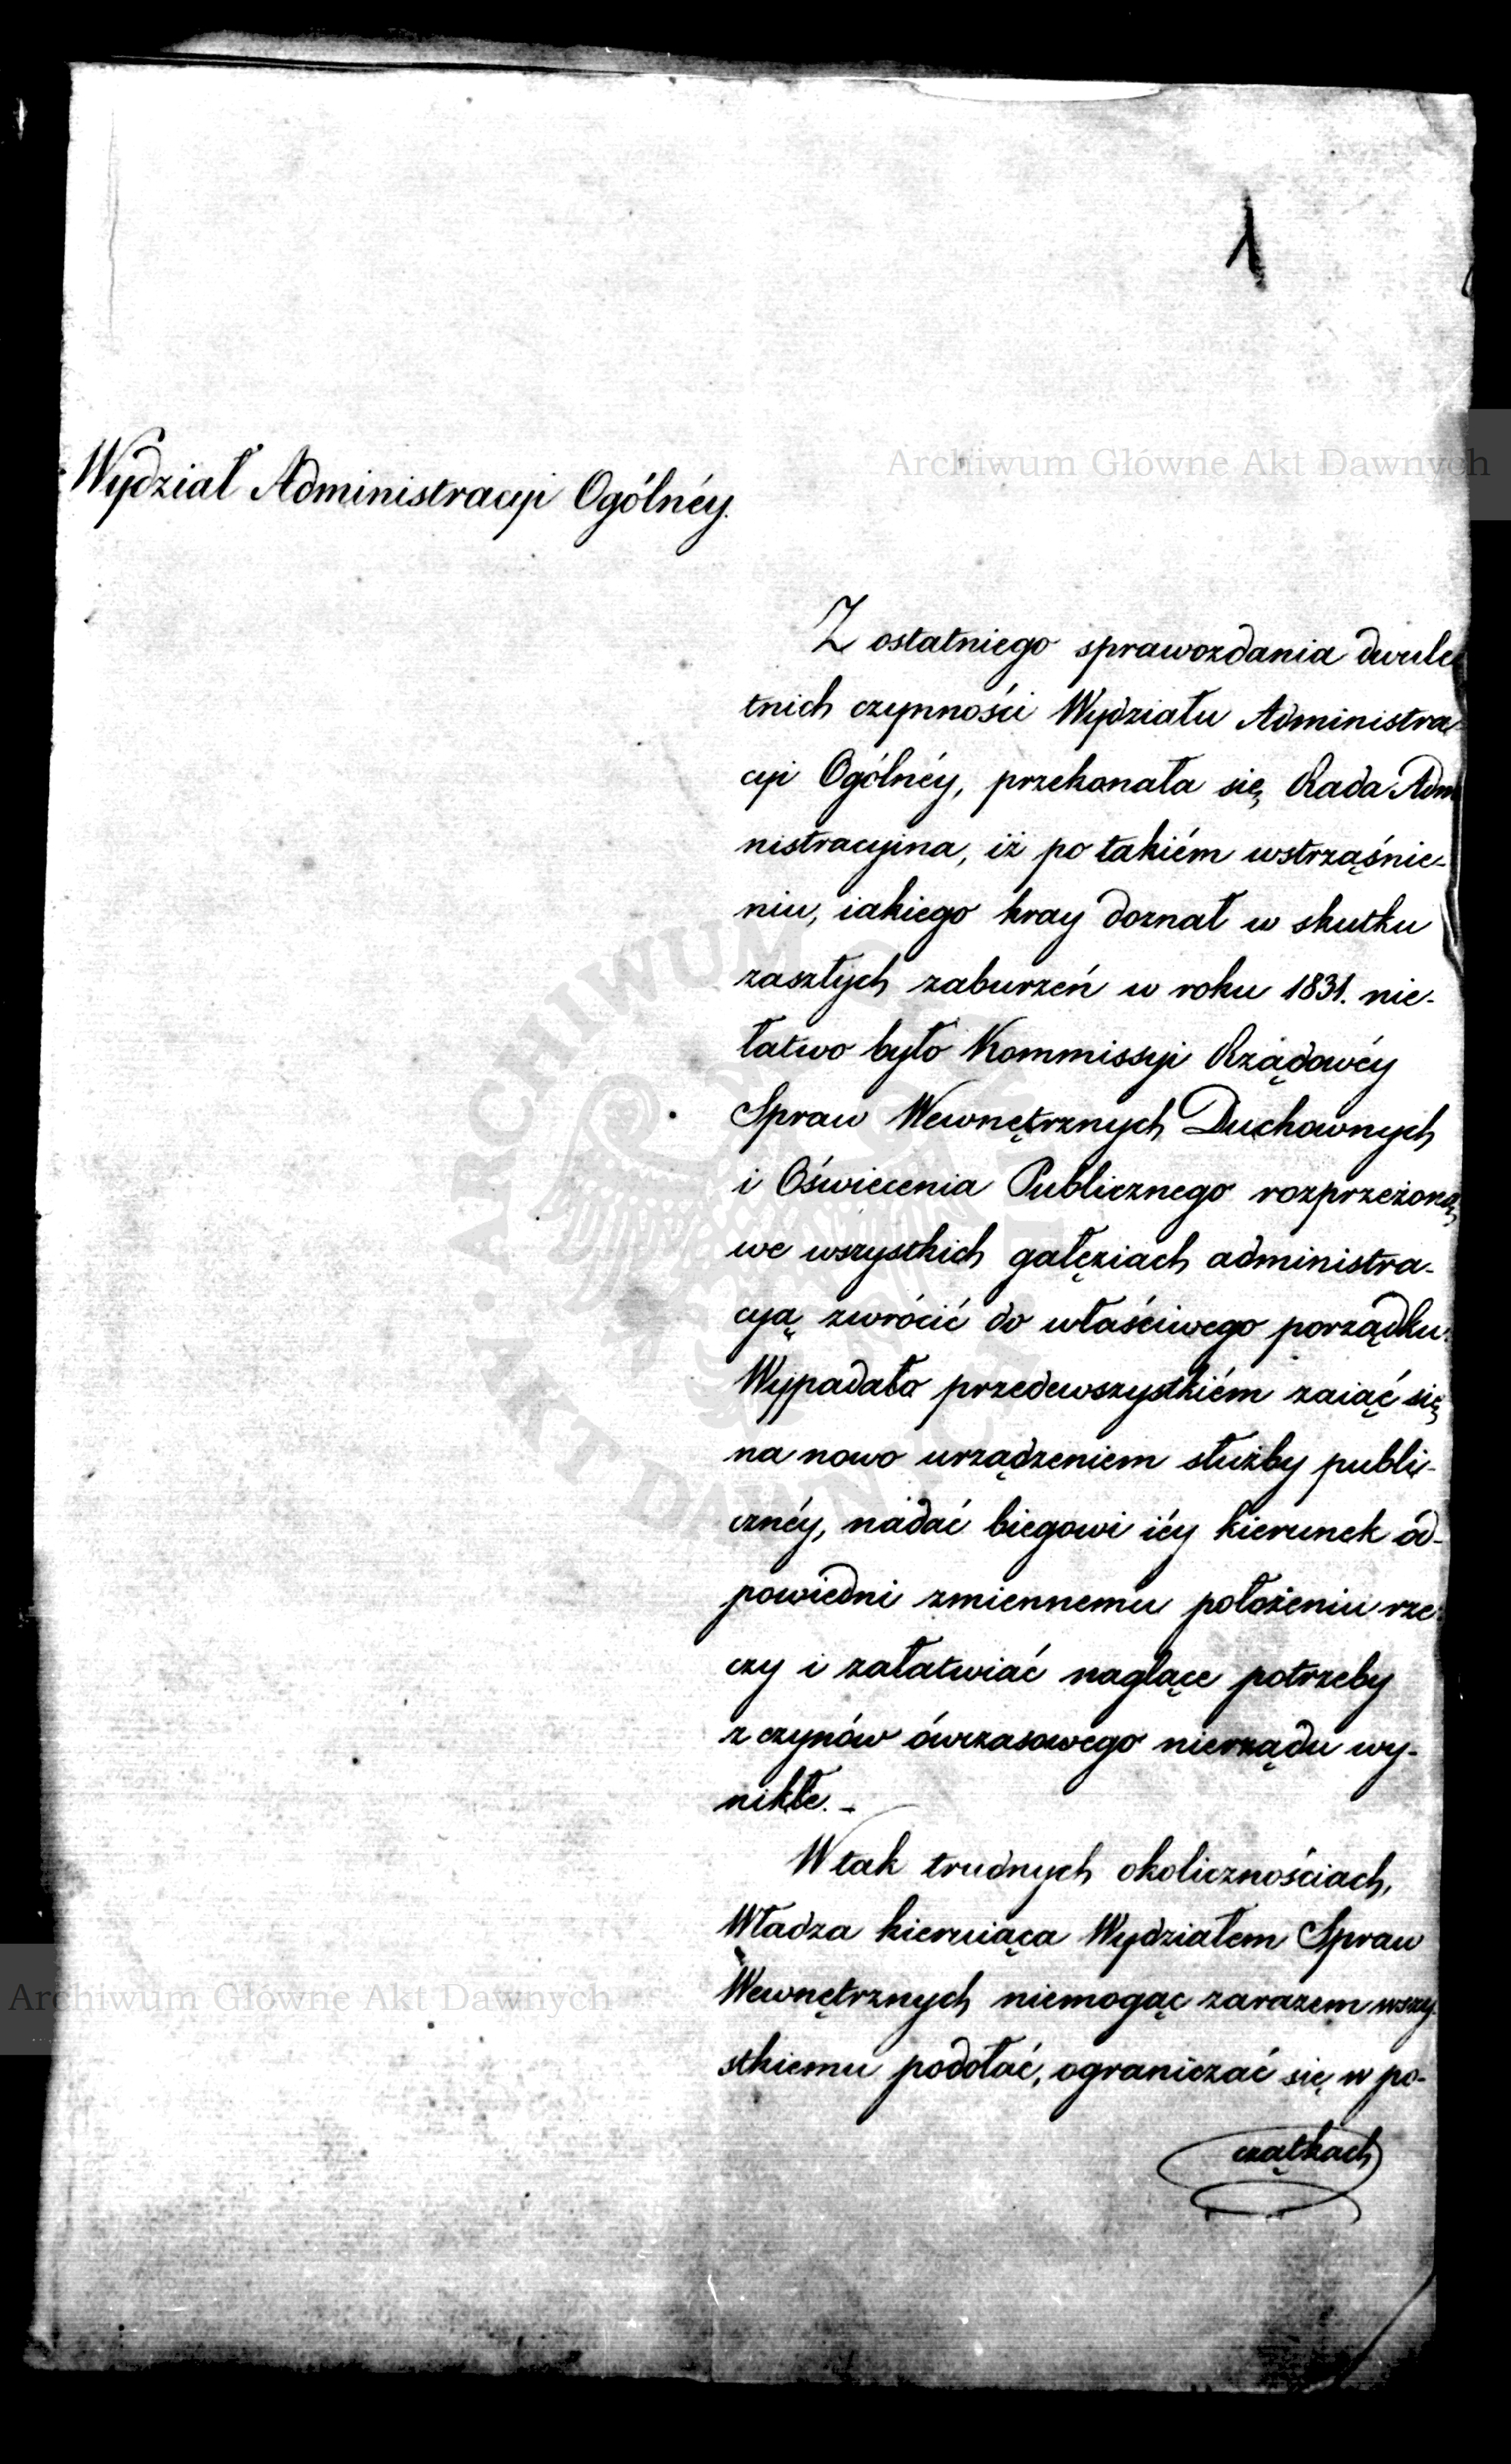 1
Archiwum Główne Akt Dawnych
Wydział Administracyi Ogólnéy.
Z ostatniego sprawozdania dwule
tnich czynności Wydziału Administra-
cyi Ogólnéy, przekonała się Rada Adm
nistracyina, iż po takiém wstrząśnie-
niu, iakiego kray doznał w skutku
zaszłych zaburzeń w roku 1831. nie-
łatwo było Kommissyi Rządowéy
Spraw Wewnętrznych Duchownych
i Oświecenia Publicznego rozprzeżoną
we wszystkich gałęziach administra-
cyą zwrócić do właściwego porządku.
Wypadało przedewszystkiém zaiąć się
na nowo urządzeniem służby publi-
cznéy, nadać biegowi iéy kierunek od-
powiedni zmiennemu położeniu rze-
czy i załatwiać naglące potrzeby
z czynów ówczasowego nierządu wy-
nikłe. -
W tak trudnych okolicznościach,
Władza kieruiąca Wydziałem Spraw
Wewnętrznych niemogąc zarazem wszy-
stkiemu podołać, ograniczać się w po-
czątkach
ARCHIWUM GŁÓWNE AKT DAWNYCH
Archiwum Główne Akt Dawnych